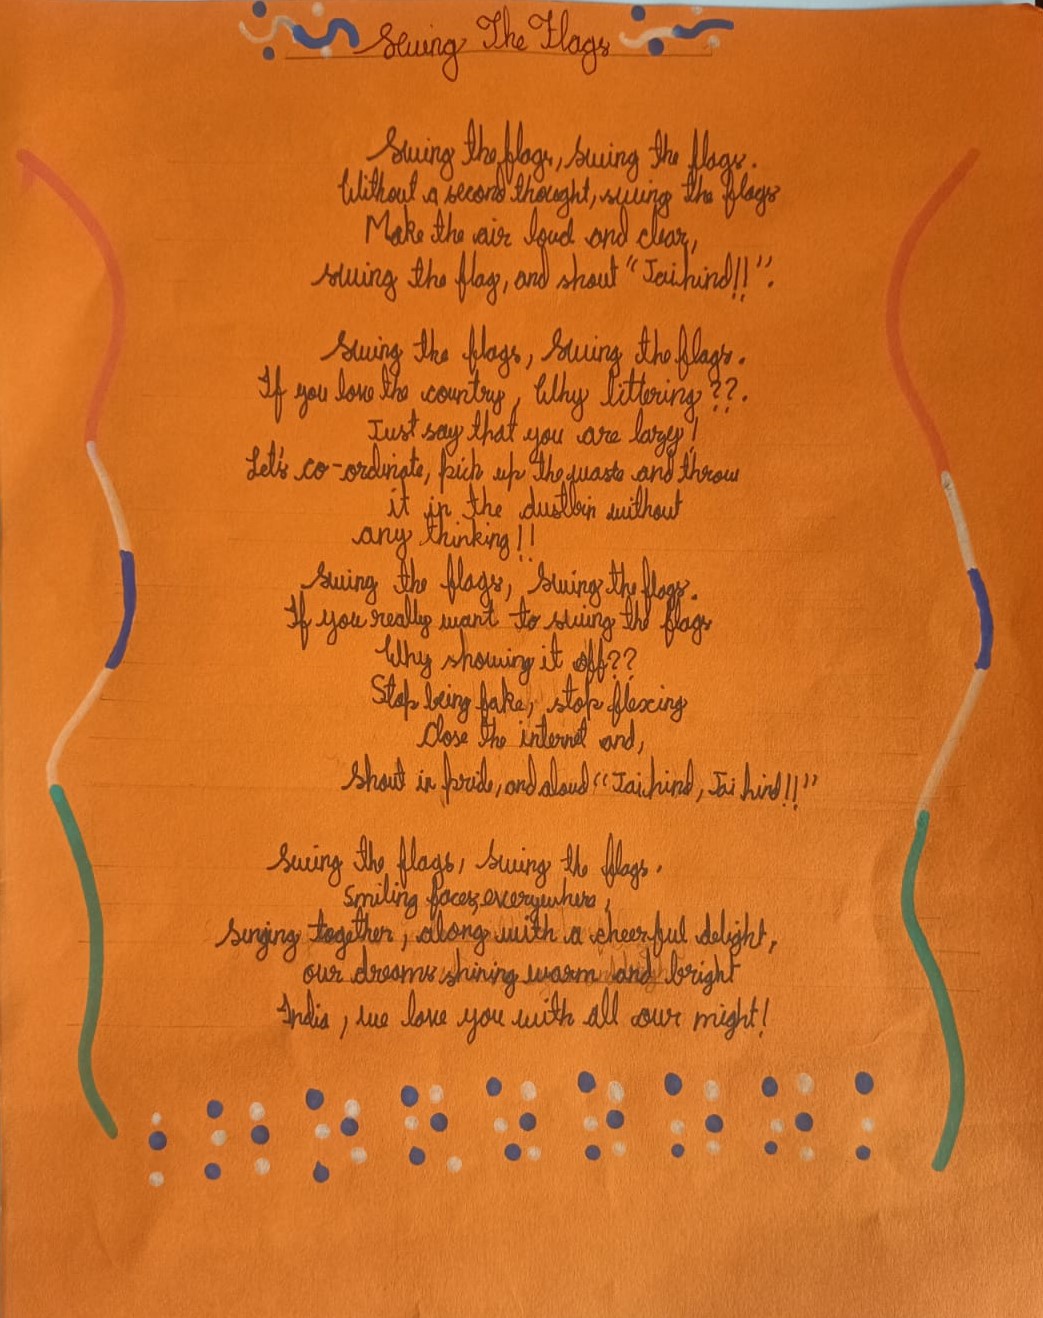 Swing The Flags
Swing the flags, swing the flags.
Without a second thought, swing the flags
Make the air loud and clear,
swing the flag, and shout "Jai hind!!".
Swing the flags, Swing the flags.
If you love the country, Why littering??.
Just say that you are lazy!
Let's co-ordinate, pick up the waste and throw
it in the dustbin without
any thinking!!
Swing the flags, Swing the flags.
If you really want to swing the flags
Why showing it off??
Stop being fake, stop flexing
Close the internet and,
Shout in pride, and aloud "Jai hind, Jai hind!!"
Swing the flags, Swing the flags.
Smiling faces, everywhere,
singing together, along with a cheerful delight,
our dreams shining warm and bright
India, we love you with all our might!